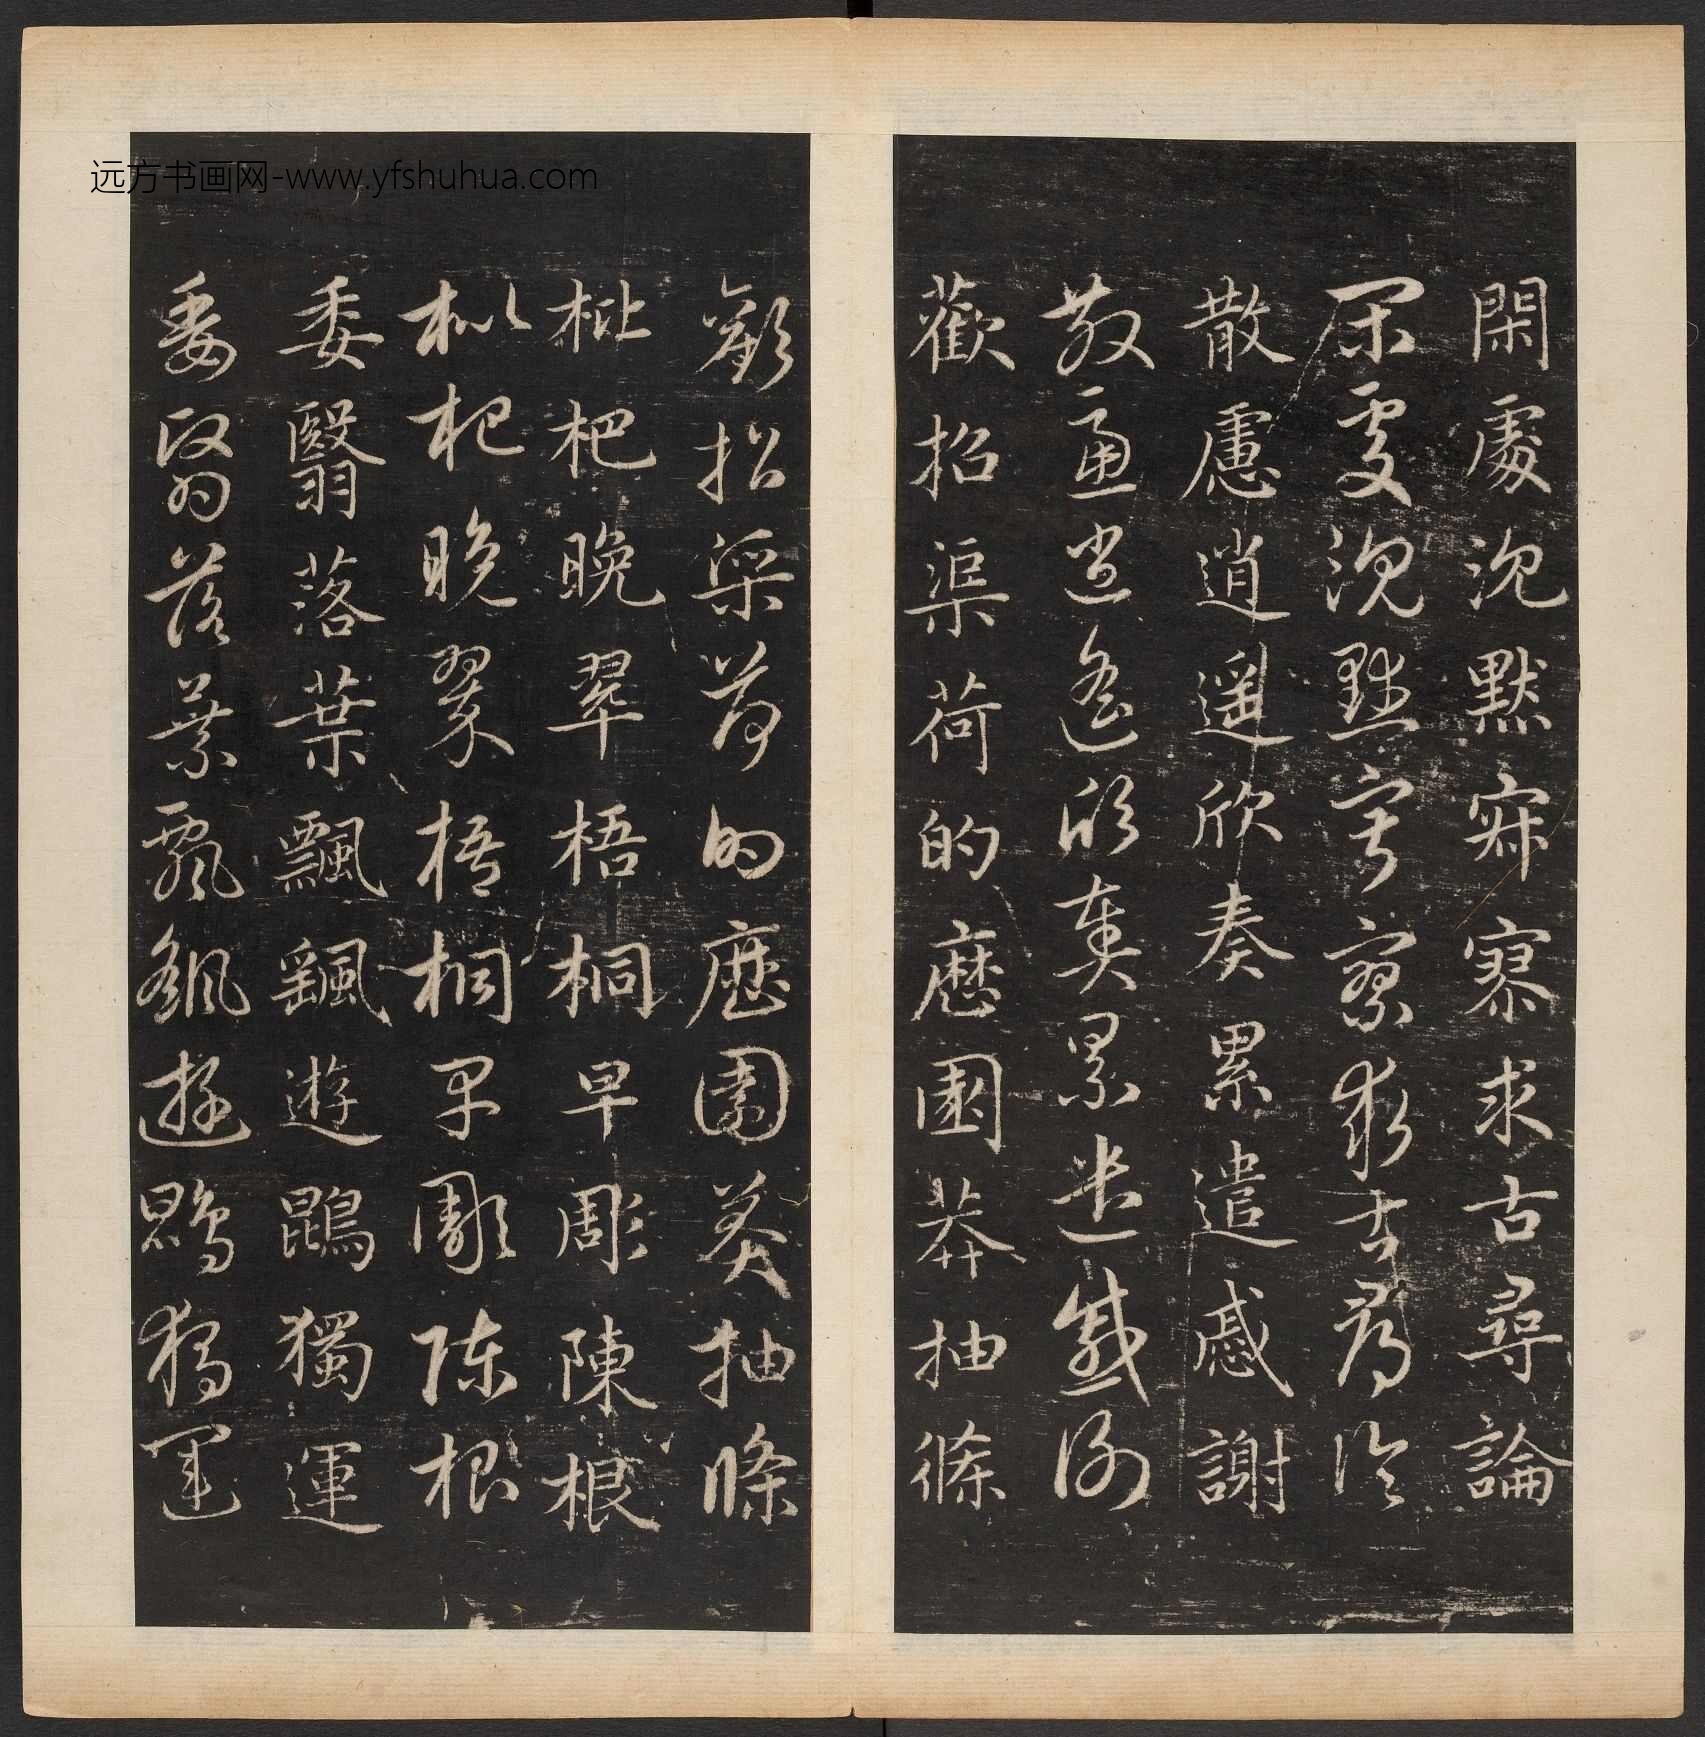 远方书画网-www.yfshuhua.com
閑處沉默寂寥求古尋論
閑處沉默寂寥求古尋論
散慮逍遥欣奏累遣慼謝
散慮逍遥欣奏累遣慼謝
歡招渠荷的歷園莽抽條
歡招渠荷的歷園莽抽條
枇杷晚翠梧桐早彫陳根
枇杷晚翠梧桐早彫陳根
委翳落葉飄飖遊鵾獨運
委翳落葉飄飖遊鵾獨運